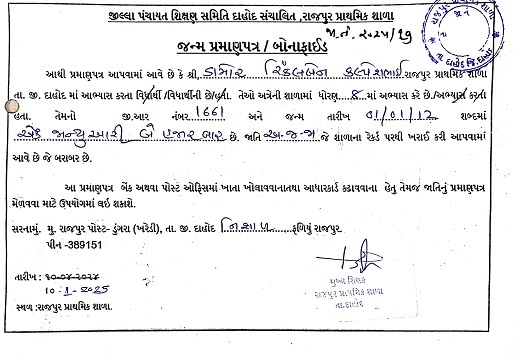 જીલ્લા પંચાયત શિક્ષણ સમિતિ દાહોદ સંચાલિત ,રાજપુર પ્રાથમિક શાળા
જા.નં. ૨૦૨૫/૧૭
જન્મ પ્રમાણપત્ર / બોનાફાઈડ
આથી પ્રમાણપત્ર આપવામાં આવે છે કે શ્રી, ડામોર રિંકલબેન કલ્પેશભાઈ રાજપુર પ્રાથમિક શાળા
તા. જી. દાહોદ માં આભ્યાસ કરતા વિદ્યાર્થી /વિધાર્થીની છે/હતા. તેઓ અત્રેની શાળામાં ધોરણ 8 માં અભ્યાસ કરે છે./અભ્યાસ કરતા
હતા. તેમનો જી.આર નંબર 1661 અને જન્મ તારીખ 01/01/12 શબ્દમાં
એક જાન્યુઆરી બે હજાર બાર છે. જાતિ અ.જ.જા જે શાળાના રેકર્ડ પરથી ખરાઈ કરી આપવામાં
આવે છે જે બરાબર છે.
આ પ્રમાણપત્ર બેંક અથવા પોસ્ટ ઓફિસમાં ખાતા ખોલાવવાનાતથા આધારકાર્ડ કઢાવવાના હેતુ તેમજ જાતિનું પ્રમાણપત્ર
મેળવવા માટે ઉપયોગમાં લઇ શકાશે.
સરનામું. મુ. રાજપુર પોસ્ટ- ડુંગરા (ખરેડી), તા. જી. દાહોદ નિશાળ ફળિયું રાજપુર.
પીન -389151
તારીખ :
10-1-2025
સ્થળ :રાજપુર પ્રાથમિક શાળા.
મુખ્ય શિક્ષક
રાજપુર પ્રાથમિક શાળા
તા.દાહોદ